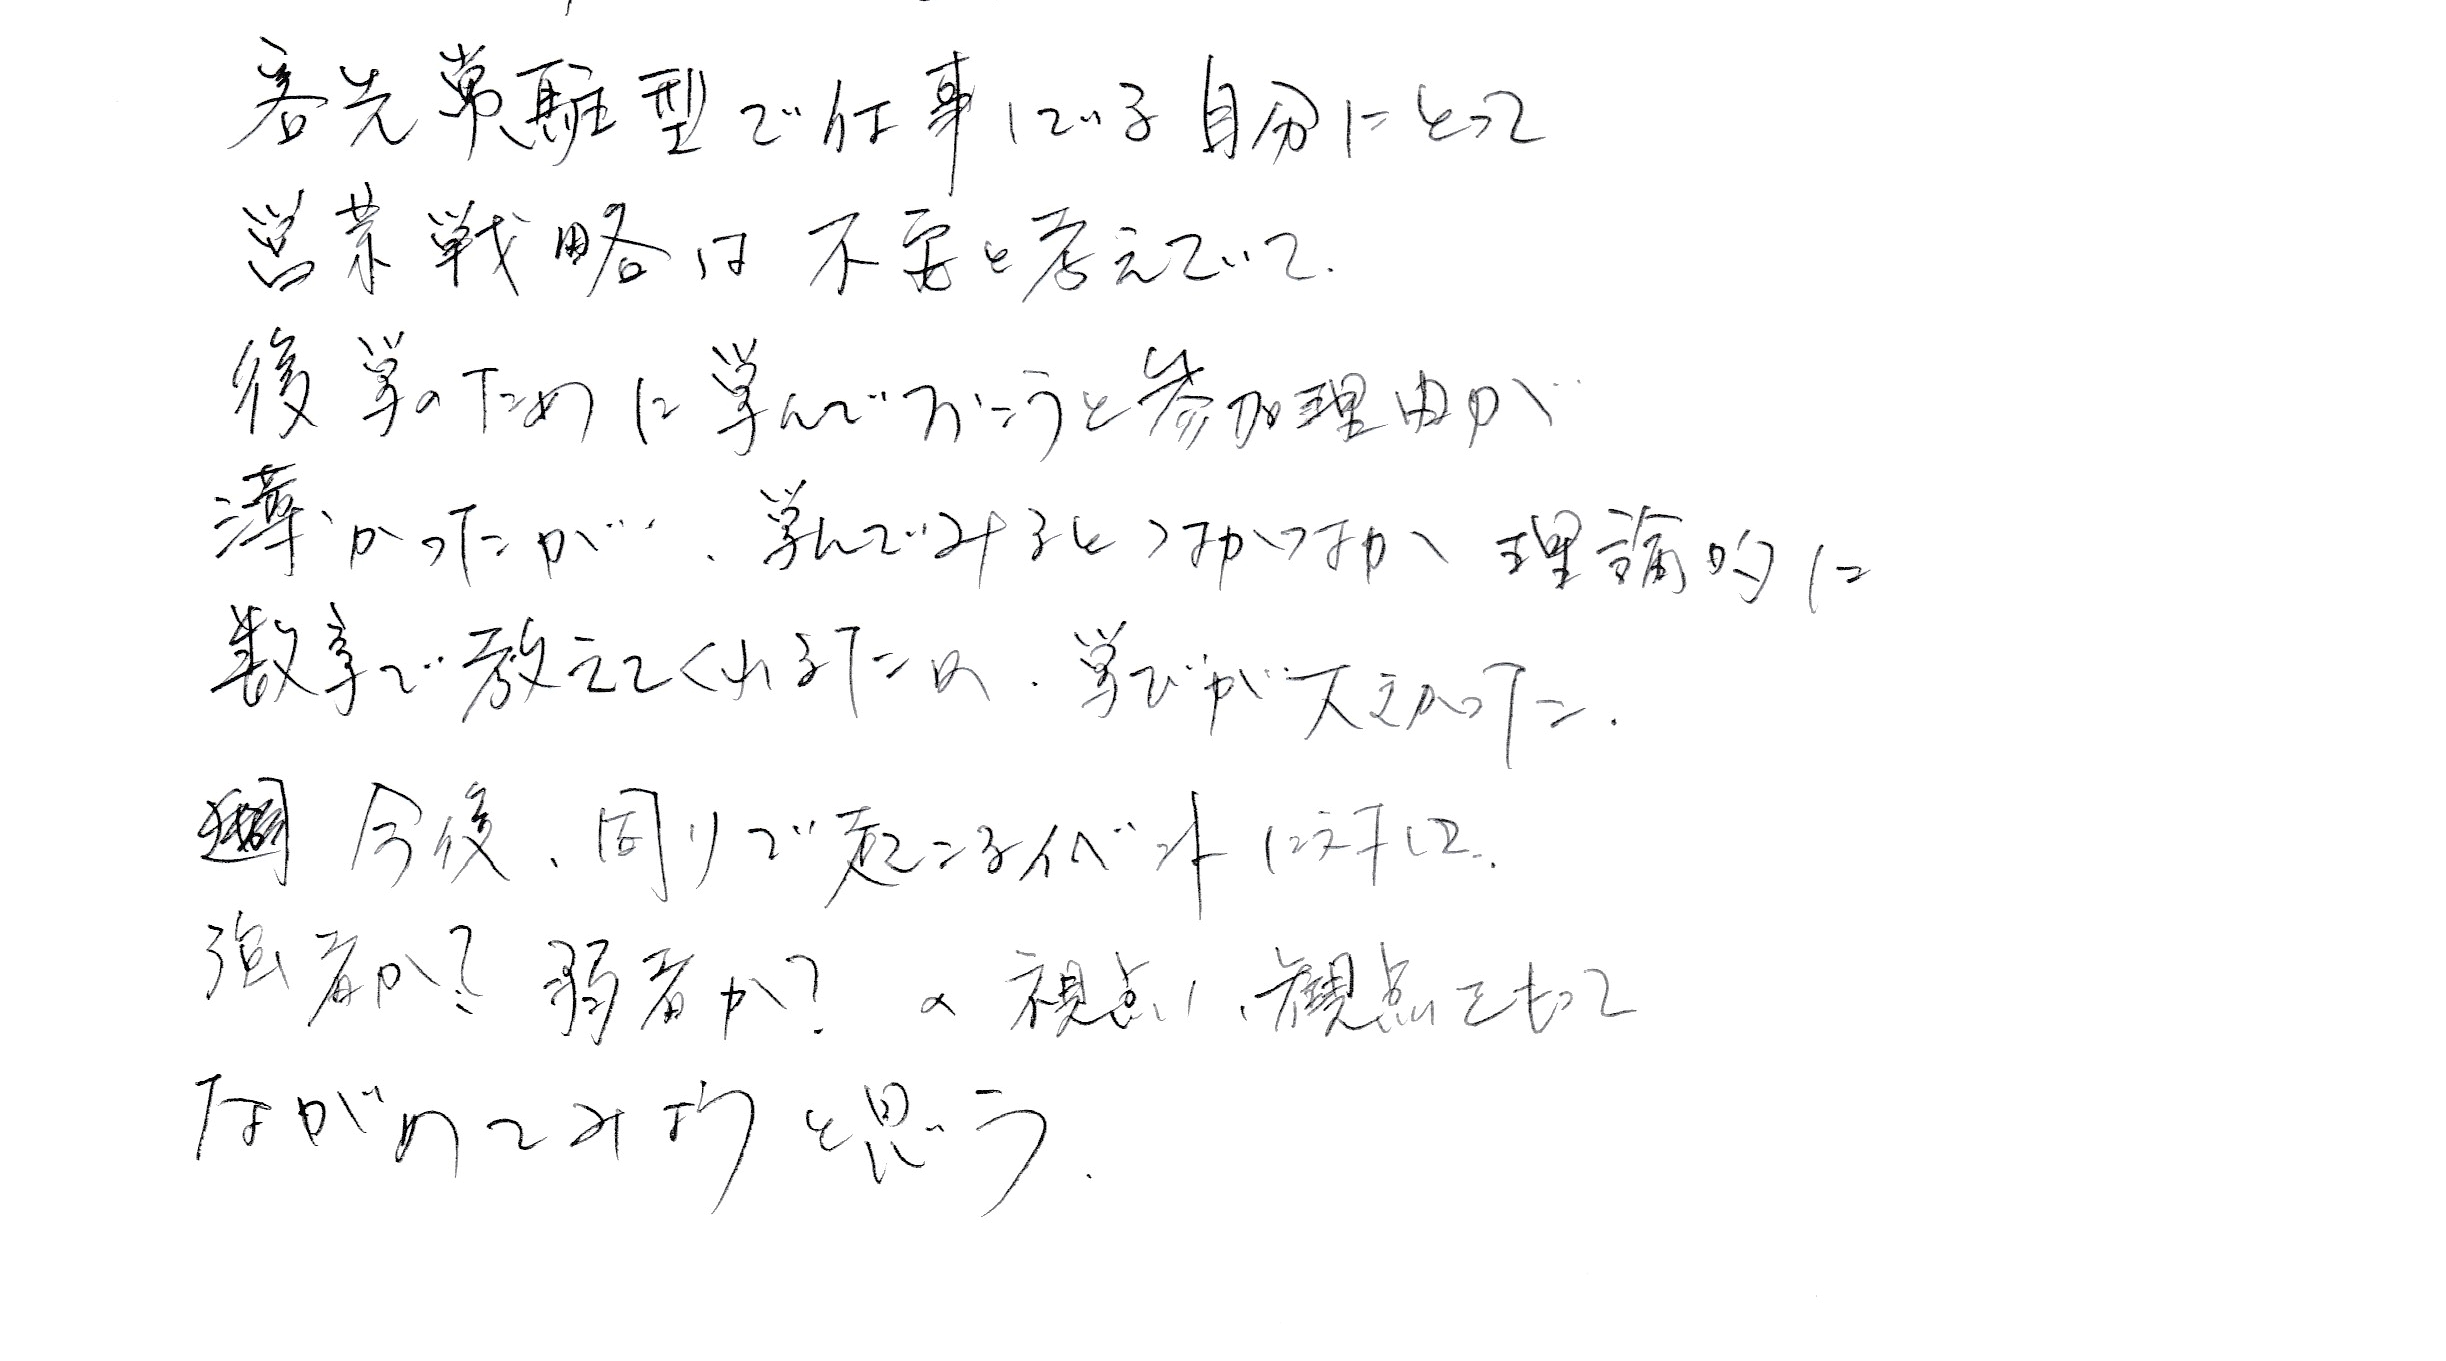 客先常駐型で仕事している自分にとって
営業戦略は不要と考えていて、
後学のために学んでおこうと参加理由が
薄かったが、学んでみるとなかなか理論的に
数字で教えてくれるため、学びが大きかった。
今後、周りで起こるイベントに対して、
強者か？弱者か？の視点、観点をもって
ながめてみようと思う。